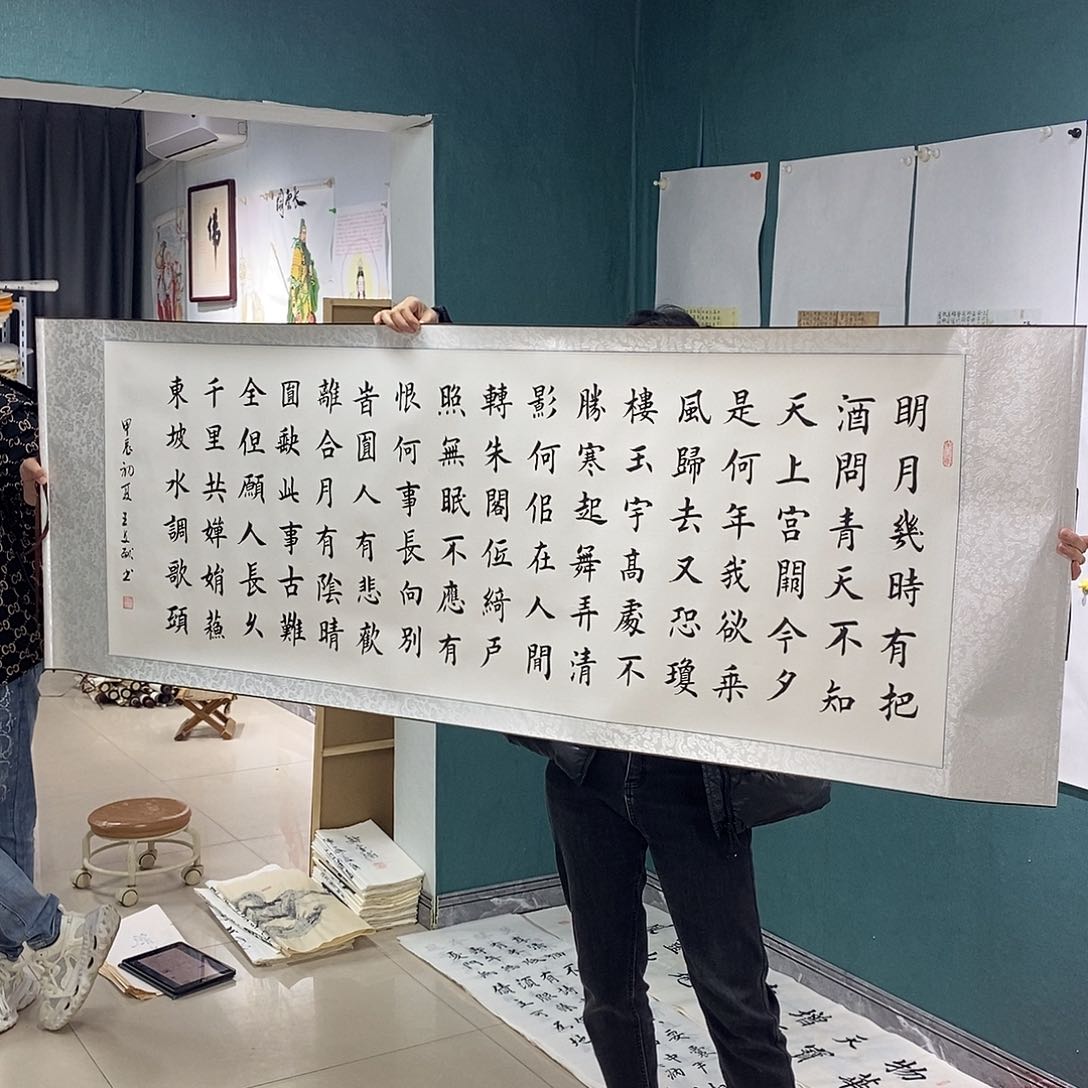 眀月幾時有把
酒問青天不知
天上宮闕今夕
是何年我欲乘
風歸去又恐瓊
樓玉宇高處不
勝寒起舞弄清
影何佀在人間
轉朱閣低綺戶
照無眠不應有
恨何事長向別
旹圓人有悲歡
離合月有陰晴
圓缺此事古難
全但願人長久
千里共嬋娟蘇
東坡水調歌頭
甲辰初夏王書
佛